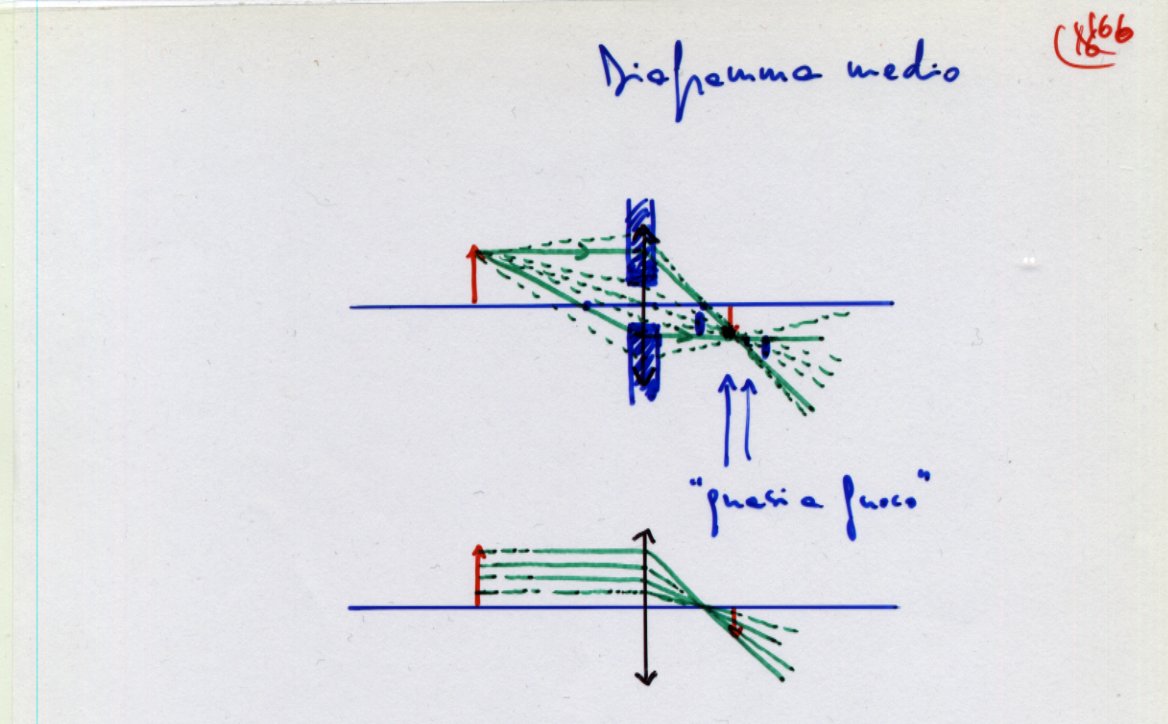 Diaframma medio
"quasi a fuoco"